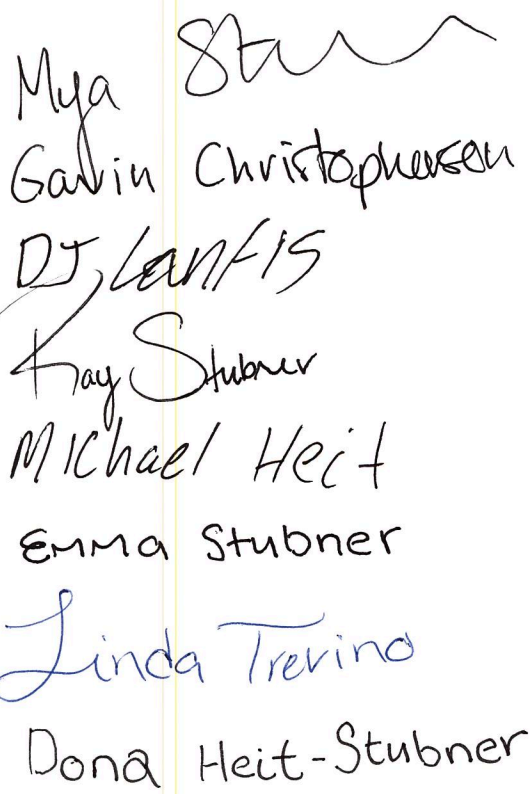 Mya
Gavin Christophersen
DJ Lantis
Kay Stubner
Michael Heit
Emma Stubner
Linda Trevino
Dona Heit-Stubner